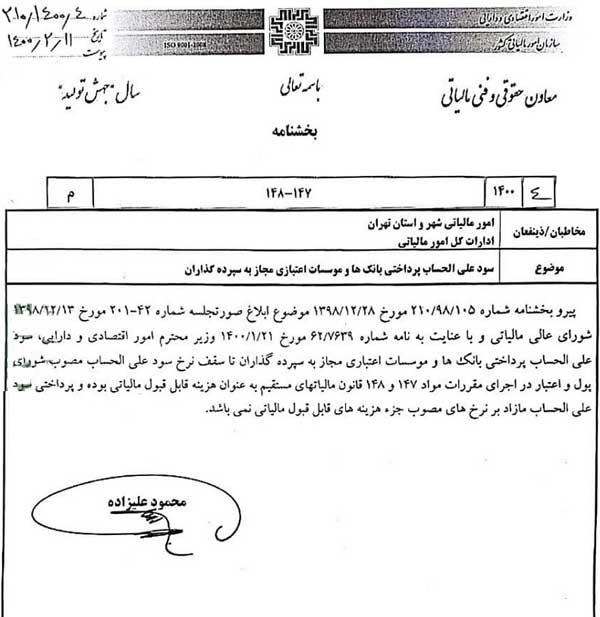 وزارت امور اقتصادی و دارایی
سازمان امور مالیاتی کشور
ISO 9001-2008
شماره ۲۱۰/۱۴۰۰/۴
تاریخ ۱۴۰۰/۲/۱۱
پیوست
باسمه تعالی
معاون حقوقی و فنی مالیاتی
سال "جهش تولید"
بخشنامه
۴ ۱۴۰۰ ۱۴۷-۱۴۸ م
مخاطبان/ذینفعان
امور مالیاتی شهر و استان تهران
ادارات کل امور مالیاتی
موضوع سود علی الحساب پرداختی بانک ها و موسسات اعتباری مجاز به سپرده گذاران
پیرو بخشنامه شماره ۲۱۰/۹۸/۱۰۵ مورخ ۱۳۹۸/۱۲/۲۸ موضوع ابلاغ صورتجلسه شماره ۴۲-۲۰۱ مورخ ۱۳۹۸/۱۲/۱۳
شورای عالی مالیاتی و با عنایت به نامه شماره ۶۲/۷۶۳۹ مورخ ۱۴۰۰/۱/۲۱ وزیر محترم امور اقتصادی و دارایی، سود
علی الحساب پرداختی بانک ها و موسسات اعتباری مجاز به سپرده گذاران تا سقف نرخ سود علی الحساب مصوب شورای
پول و اعتبار در اجرای مقررات مواد ۱۴۷ و ۱۴۸ قانون مالیاتهای مستقیم به عنوان هزینه قابل قبول مالیاتی بوده و پرداختی سود
علی الحساب مازاد بر نرخ های مصوب جزء هزینه های قابل قبول مالیاتی نمی باشد.
محمود علیزاده